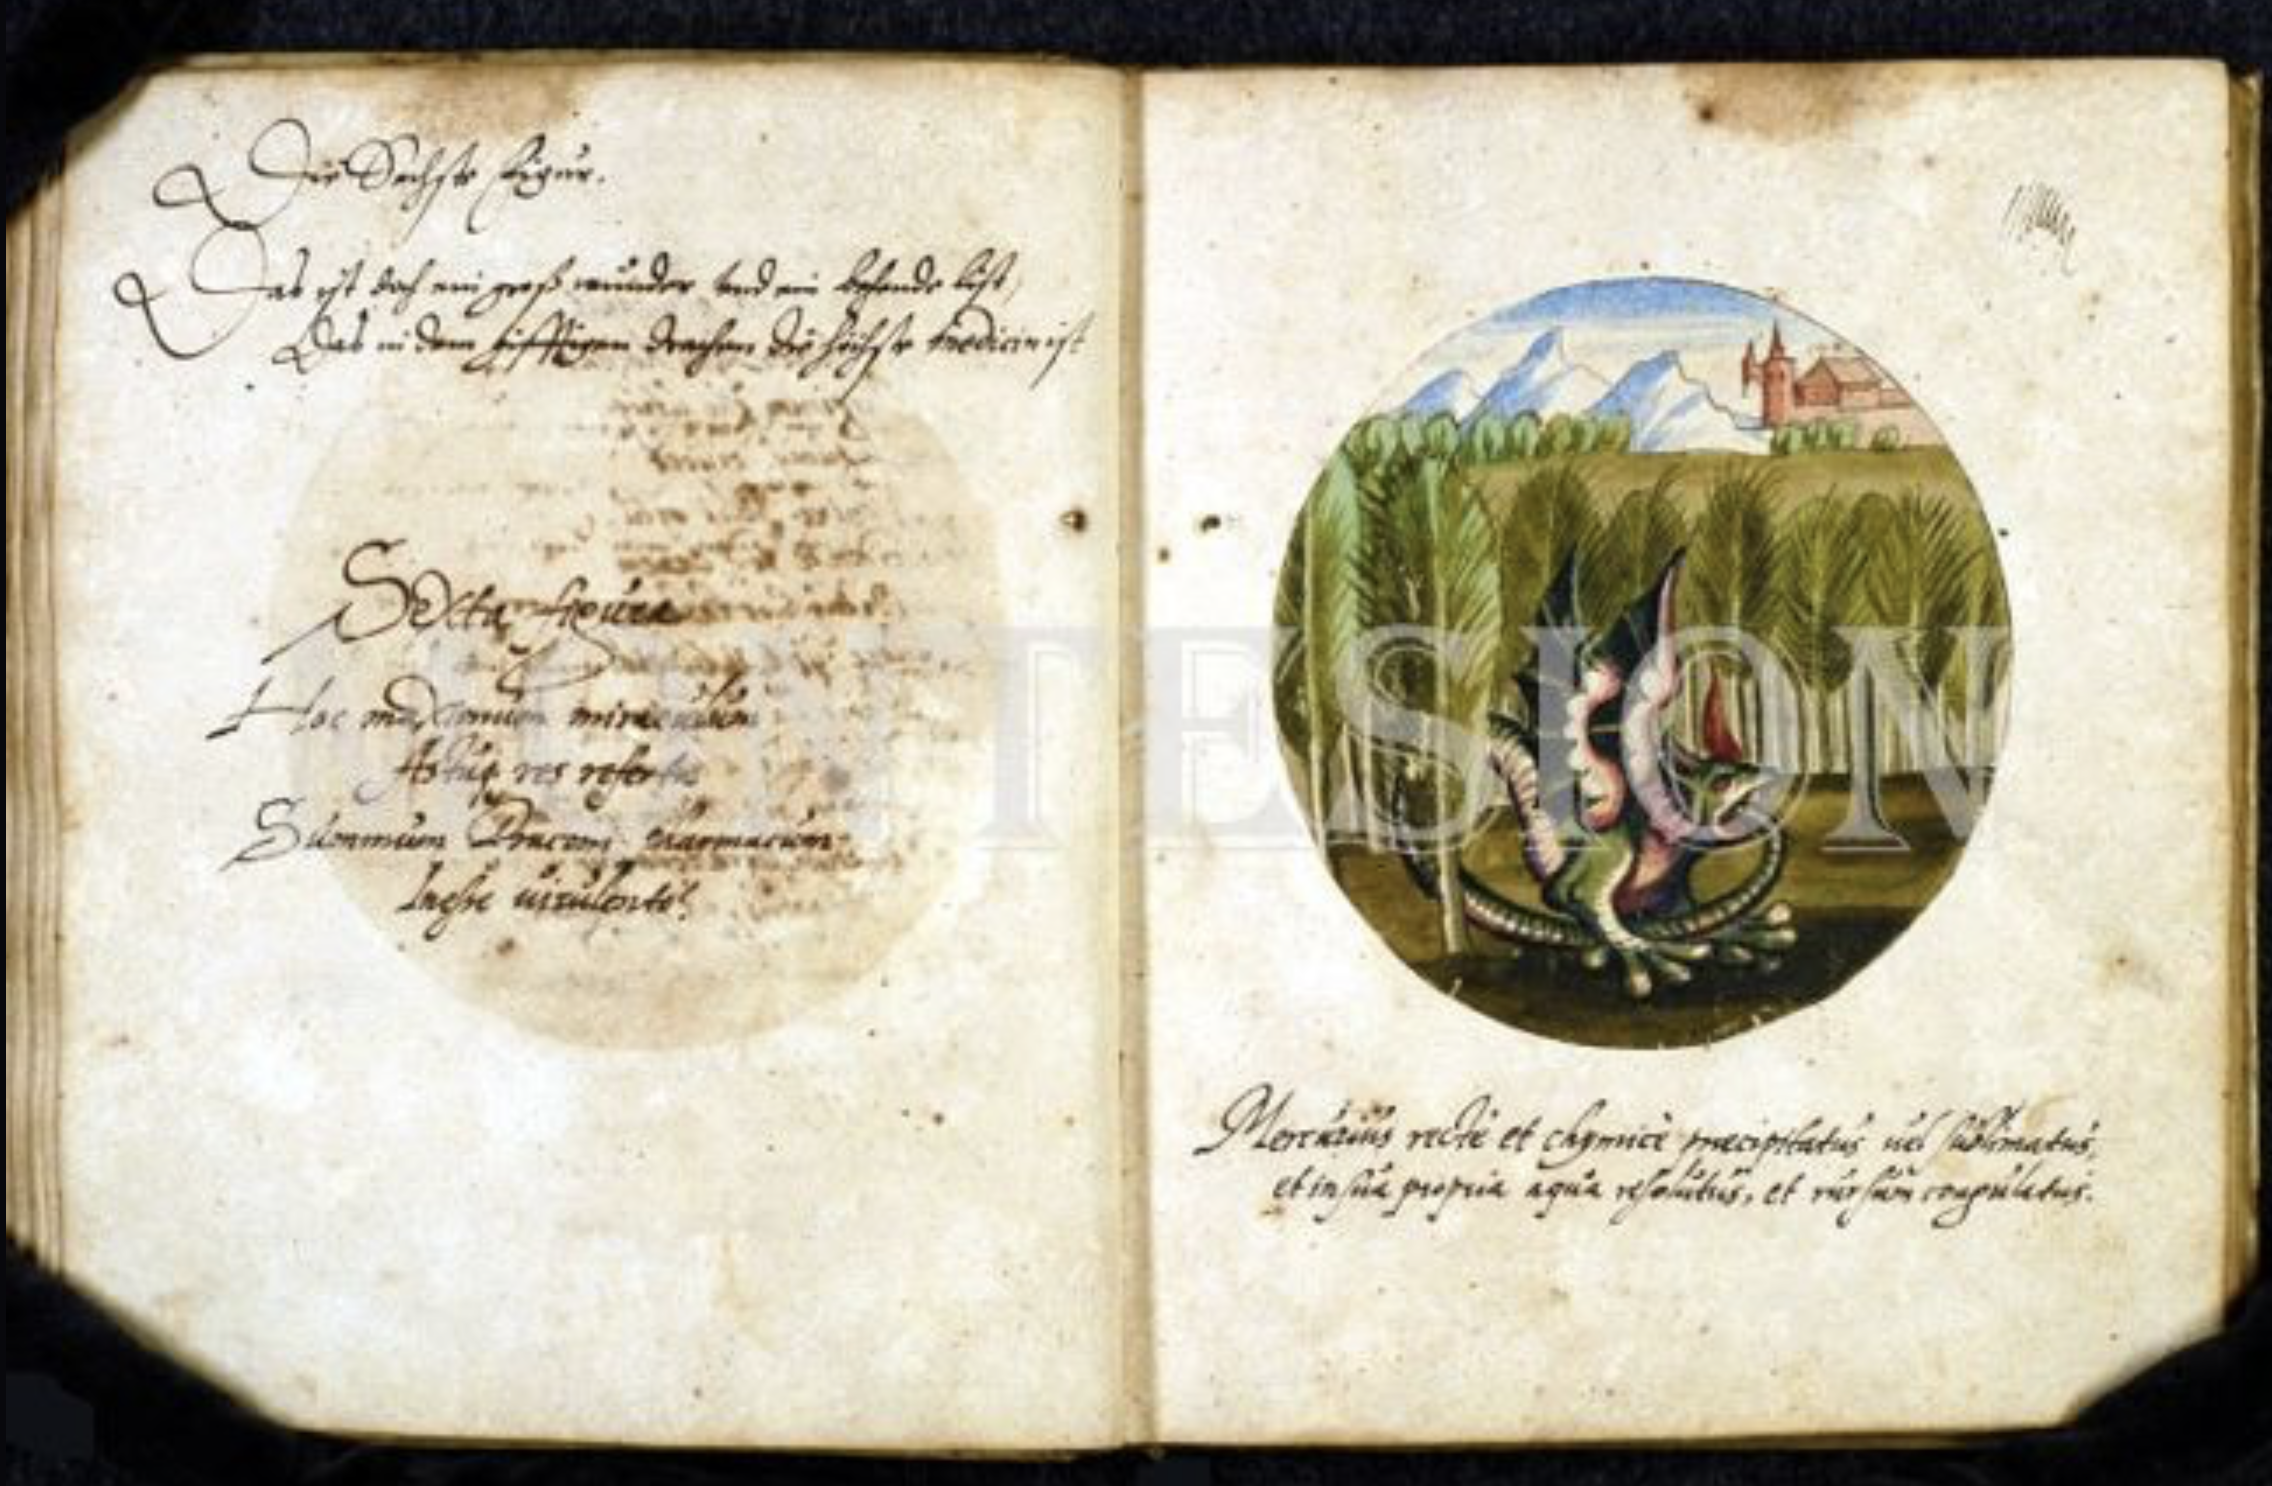 Die Sechste Figur.
Das ist doch ein groß wunder vnd ein behende list,
Das in dem gifftigen drachen die höchste medicin ist
Sexta figura
Hoc maximum miraculum
Astuq res referta
Summum Draconi pharmacum
Inesse virulento.
Mercurius recte et chymicè præcipitatus uel sublimatus,
et in sua propria aqua resolutus, et rursum coagulatus.
TESION